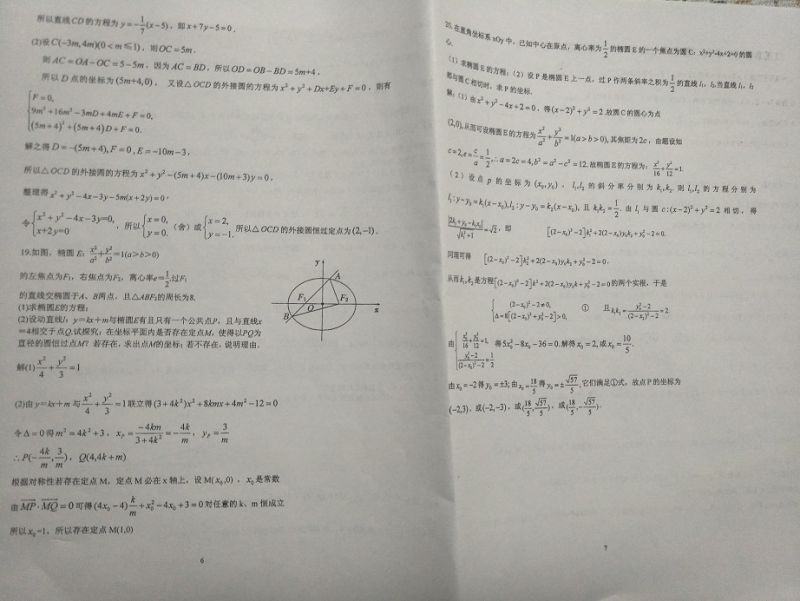 所以直线CD的方程为 y=-1/7(x-5)，即 x+7y-5=0.
(2)设C(-3m,4m)(0<m≤1)，则OC=5m.
则 AC=OA-OC=5-5m，因为 AC=BD，所以OD=OB-BD=5m+4，
所以 D 点的坐标为 (5m+4,0)， 又设△OCD的外接圆的方程为 x²+y²+Dx+Ey+F=0，则有
F=0,
9m²+16m²-3mD+4mE+F=0,
(5m+4)²+(5m+4)D+F=0.
解之得 D=-(5m+4),F=0,E=-10m-3，
所以△OCD的外接圆的方程为 x²+y²-(5m+4)x-(10m+3)y=0，
整理得 x²+y²-4x-3y-5m(x+2y)=0，
令{x²+y²-4x-3y=0, x+2y=0 ，所以{x=0, y=0. (舍)或{x=2, y=-1. 所以△OCD的外接圆恒过定点为(2,-1).
19.如图，椭圆E: x²/a²+y²/b²=1(a>b>0)
的左焦点为F₁，右焦点为F₂，离心率e=1/2.过F₁
的直线交椭圆于A、B两点，且△ABF₂的周长为8.
(1)求椭圆E的方程；
(2)设动直线l：y=kx+m与椭圆E有且只有一个公共点P，且与直线x
=4相交于点Q.试探究：在坐标平面内是否存在定点M，使得以PQ为
直径的圆恒过点M？若存在，求出点M的坐标；若不存在，说明理由.
y
A
F₁
O
F₂
x
B
解(1) x²/4+y²/3=1
(2)由y=kx+m与 x²/4+y²/3=1联立得(3+4k²)x²+8kmx+4m²-12=0
令Δ=0得m²=4k²+3，x_P=-4km/(3+4k²)=-4k/m，y_P=3/m
∴P(-4k/m,3/m)，Q(4,4k+m)
根据对称性若存在定点 M，定点 M 必在 x 轴上，设 M(x₀,0) ，x₀是常数
由MP·MQ=0可得(4x₀-4)k/m+x₀²-4x₀+3=0对任意的 k、m 恒成立
所以x₀=1，所以存在定点 M(1,0)
6
20.在直角坐标系xOy中，已知中心在原点，离心率为1/2的椭圆E的一个焦点为圆C：x²+y²-4x+2=0的圆
心.
（1）求椭圆E的方程；（2）设P是椭圆E上一点，过P作两条斜率之积为1/2的直线l₁，l₂.当直线l₁，l₂
都与圆C相切时，求P的坐标.
解：(1)由x²+y²-4x+2=0，得(x-2)²+y²=2.故圆C的圆心为点
(2,0),从而可设椭圆E的方程为x²/a²+y²/b²=1(a>b>0),其焦距为2c，由题设知
c=2,e=c/a=1/2,∴a=2c=4,b²=a²-c²=12.故椭圆E的方程为: x²/16+y²/12=1.
（2）设点 p 的坐标为 (x₀,y₀)，l₁,l₂ 的斜率分别为 k₁,k₂. 则 l₁,l₂ 的方程分别为
l₁:y-y₀=k₁(x-x₀),l₂:y-y₀=k₂(x-x₀), 且 k₁k₂=1/2. 由 l₁ 与圆 c:(x-2)²+y²=2 相切，得
|2k₁+y₀-k₁x₀|/√(k₁²+1)=√2，即 [(2-x₀)²-2]k₁²+2(2-x₀)y₀k₁+y₀²-2=0.
同理可得 [(2-x₀)²-2]k₂²+2(2-x₀)y₀k₂+y₀²-2=0.
从而k₁,k₂是方程[(2-x₀)²-2]k²+2(2-x₀)y₀k+y₀²-2=0的两个实根，于是
{(2-x₀)²-2≠0, Δ=8[(2-x₀)²+y₀²-2]>0, ① 且k₁k₂=(y₀²-2)/((2-x₀)²-2)=2.
由{x₀²/16+y₀²/12=1, (y₀²-2)/((2-x₀)²-2)=1/2 得5x₀²-8x₀-36=0.解得x₀=2,或x₀=10/5.
由x₀=-2得y₀=±3;由x₀=18/5得y₀=±√57/5,它们满足①式，故点P的坐标为
(-2,3)，或(-2,-3)，或(18/5,√57/5)，或(18/5,-√57/5).
7